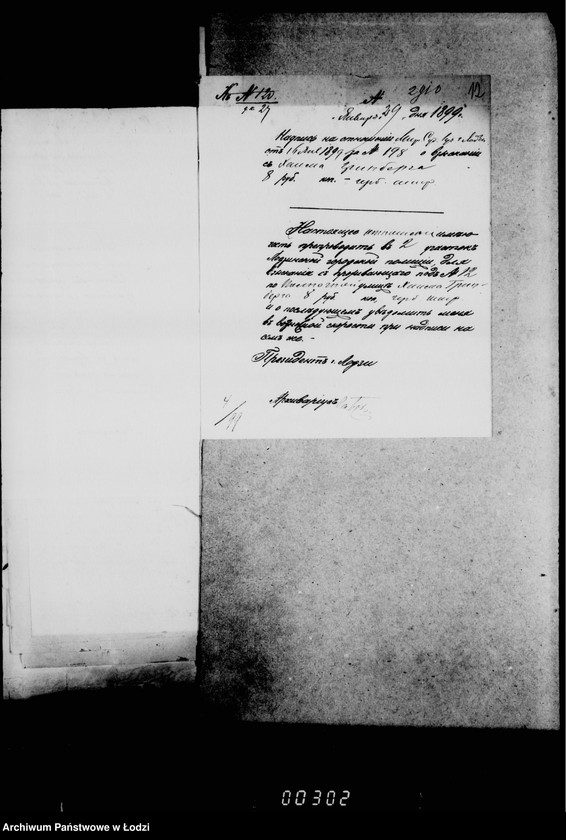 Къ № 120.
12
№
Января 29 дня 1899 г.
Надпись на отношеніи Мир. Суд.
1899 за № 198 о взысканіи
съ Хаима Гринберга
8 руб. коп. – герб. штр.
Настоящее имѣю
честь препроводить въ 2 участокъ
Лодзинской городской полиціи, для
взысканія съ проживающаго подъ № 12
по улицѣ Хаима Грин-
берга 8 руб. коп. герб. штр.
и о послѣдующемъ увѣдомить меня
въ возможной скорости при надписи на
семъ же. –
Президентъ г. Лодзи
Архиваріусъ
4/99
00302
Archiwum Państwowe w Łodzi